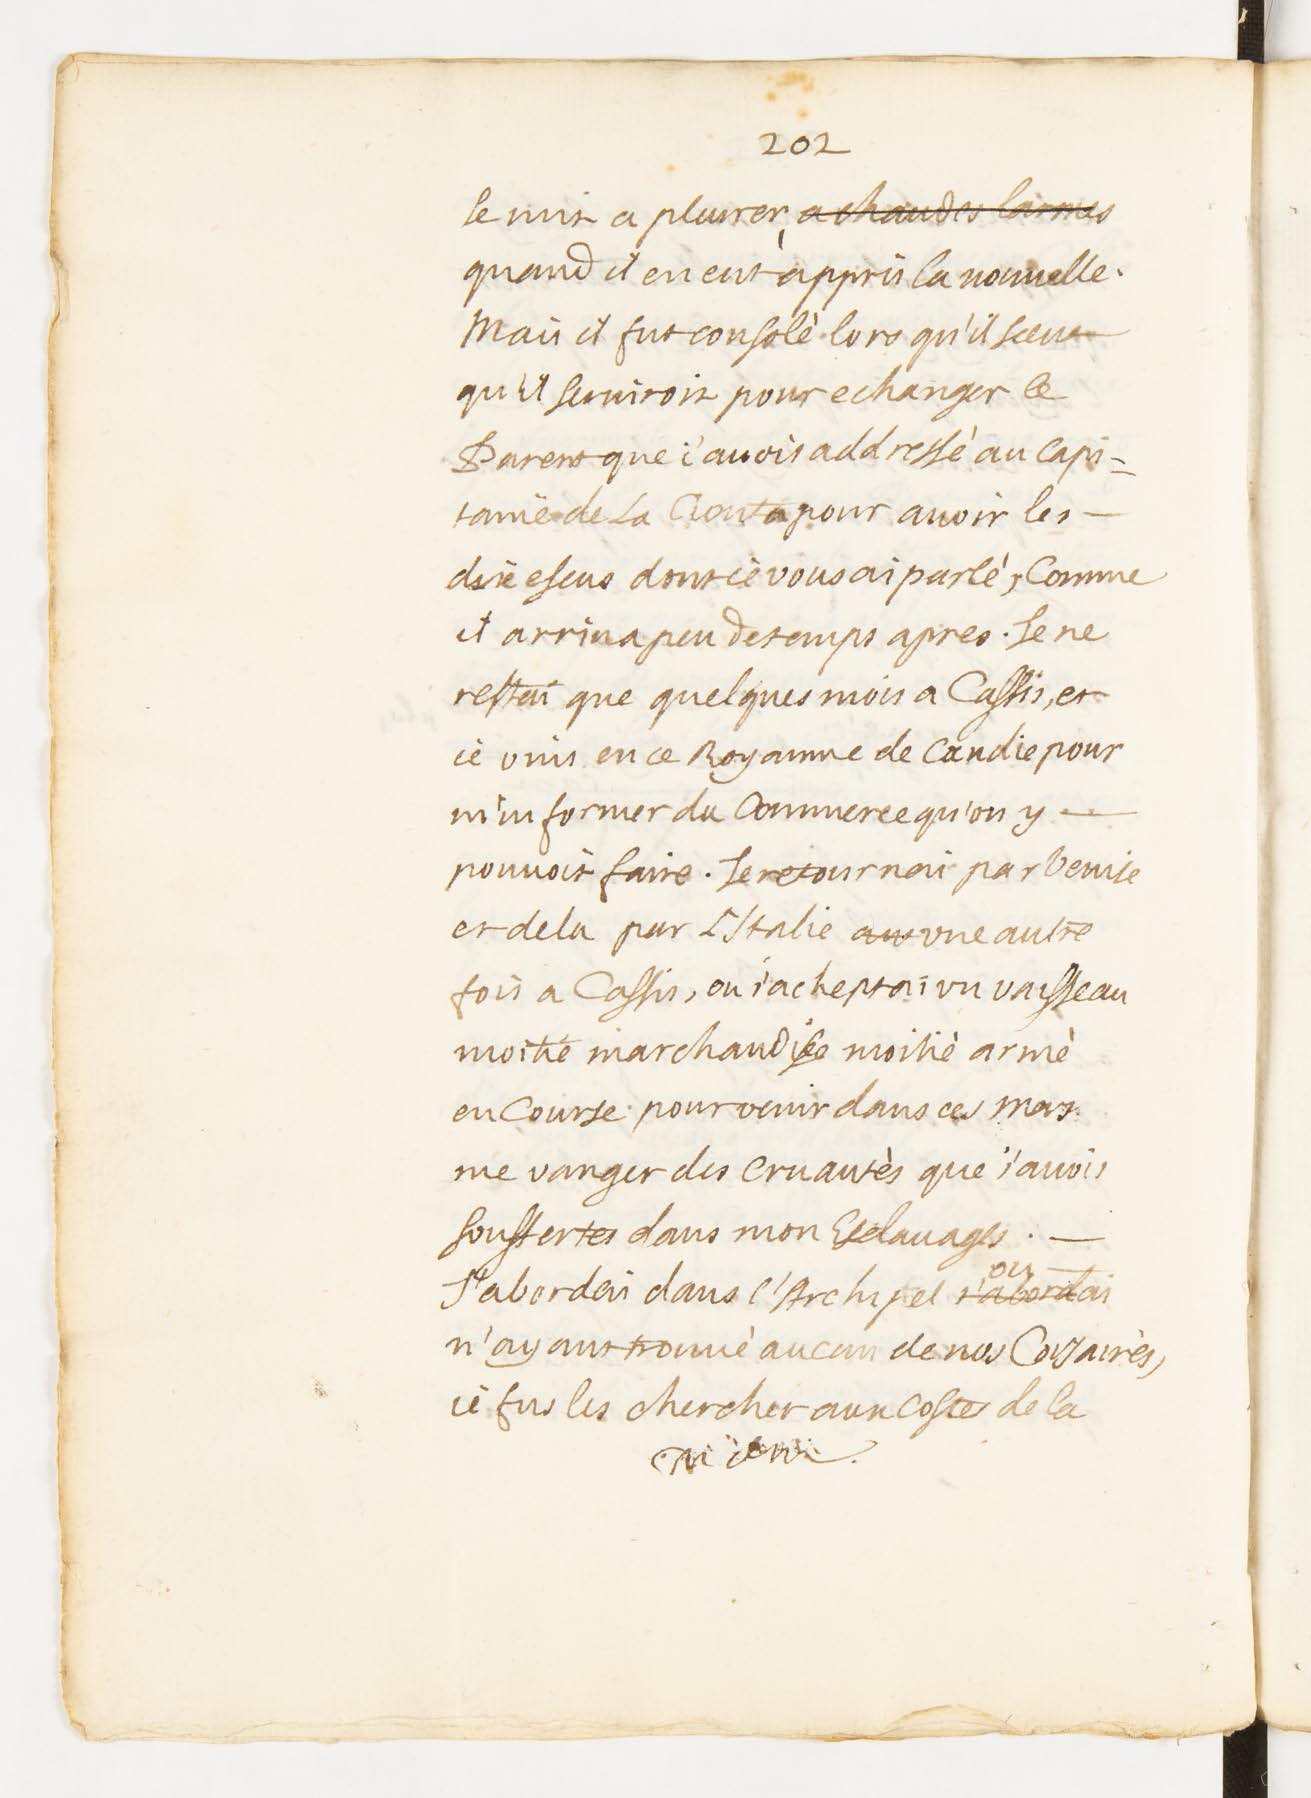 202
se mit a pleurer, a chaudes larmes
quand il en eut appris la nouuelle.
Mais il fut consolè lors qu'il sceut
qu'il seruiroit pour echanger le
Parent que i'auois addressè au Capi=
taine de la pour auoir les
dix escus dont ie vous ai parlè, Comme
il arriua peu de temps apres. Ie ne
restai que quelques mois a Cassis, et
ie vins en ce Royaume de Candie pour
m'informer du Commerce qu'on y
pouuoit faire. Ie retournai par Venise
et de la par L'Italie vne autre
fois a Cassis, ou i'acheptai vn vaisseau
moitiè marchandise moitiè armè
en Course pour venir dans ces mers
me vanger des Cruautès que i'auois
souffertes dans mon Esclauages.
ou
I'abordai dans l'Archipel i'abordai
n'ayant trouuè aucun de nos Corsaires,
ie fus les chercher aux costes de la